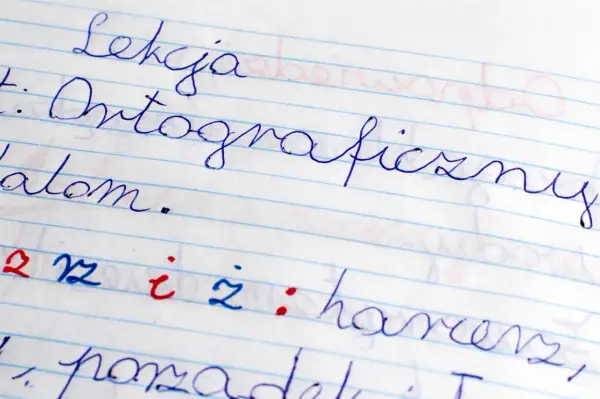 Lekcja
t: Ortograficzny
alom.
z rz i ż: harcerz,